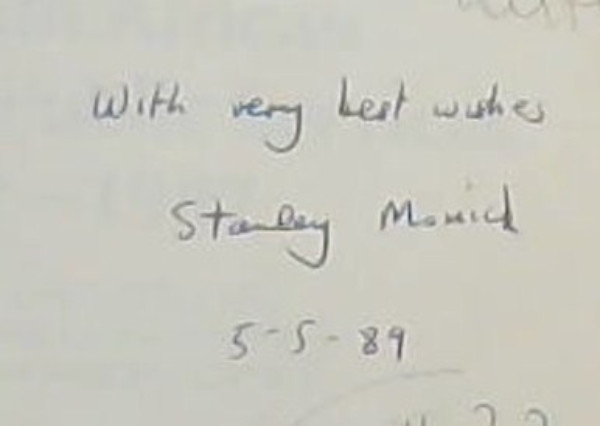 With very best wishes
Stanley Monick
5-5-89